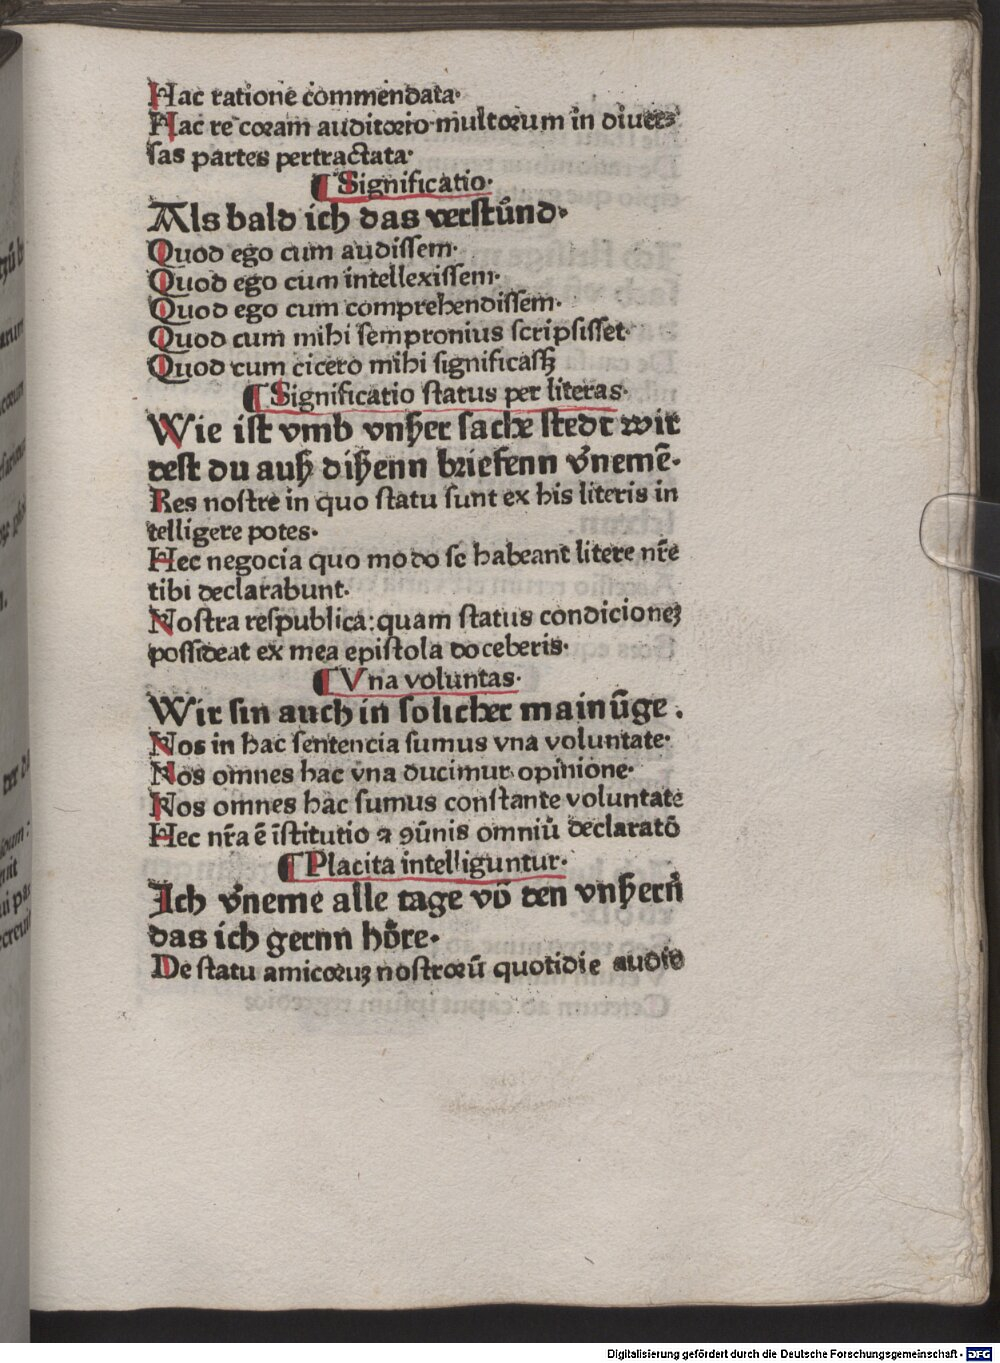 Hac ratione commendata·
Hac re coram auditorio multorum in diuer⸗
ſas partes pertractata·
¶ Significatio·
Als bald ich das verſtūnd·
Quod ego cum audiſſem·
Quod ego cum intellexiſſem·
Quod ego cum comprehendiſſem·
Quod cum mihi ſempronius ſcripſiſſet·
Quod cum cicero mihi ſignificaſſꝫ
¶ Significatio ſtatus per literas·
Wie iſt vmb vnßer ſache ſtedt wir
deſt du auß dißenn briefenn v̄nemē·
Res noſtre in quo ſtatu ſunt ex his literis in
telligere potes·
Hec negocia quo modo ſe habeant litere nr̄e
tibi declarabunt·
Noſtra reſpublica: quam ſtatus condicioneꝫ
poſſideat ex mea epiſtola doceberis·
¶ Vna voluntas·
Wir ſin auch in ſolicher mainūge.
Nos in hac ſentencia ſumus vna voluntate·
Nos omnes hac vna ducimur opinione·
Nos omnes hac ſumus conſtante voluntate
Hec nr̄a ē īſtitutio ⁊ ꝯūnis omniū declaratō
¶ Placita intelliguntur·
Ich v̄neme alle tage vō den vnßern̄
das ich gernn hoͤre·
De ſtatu amicoruꝫ noſtrorū quotidie audio
Digitalisierung gefördert durch die Deutsche Forschungsgemeinschaft - DFG